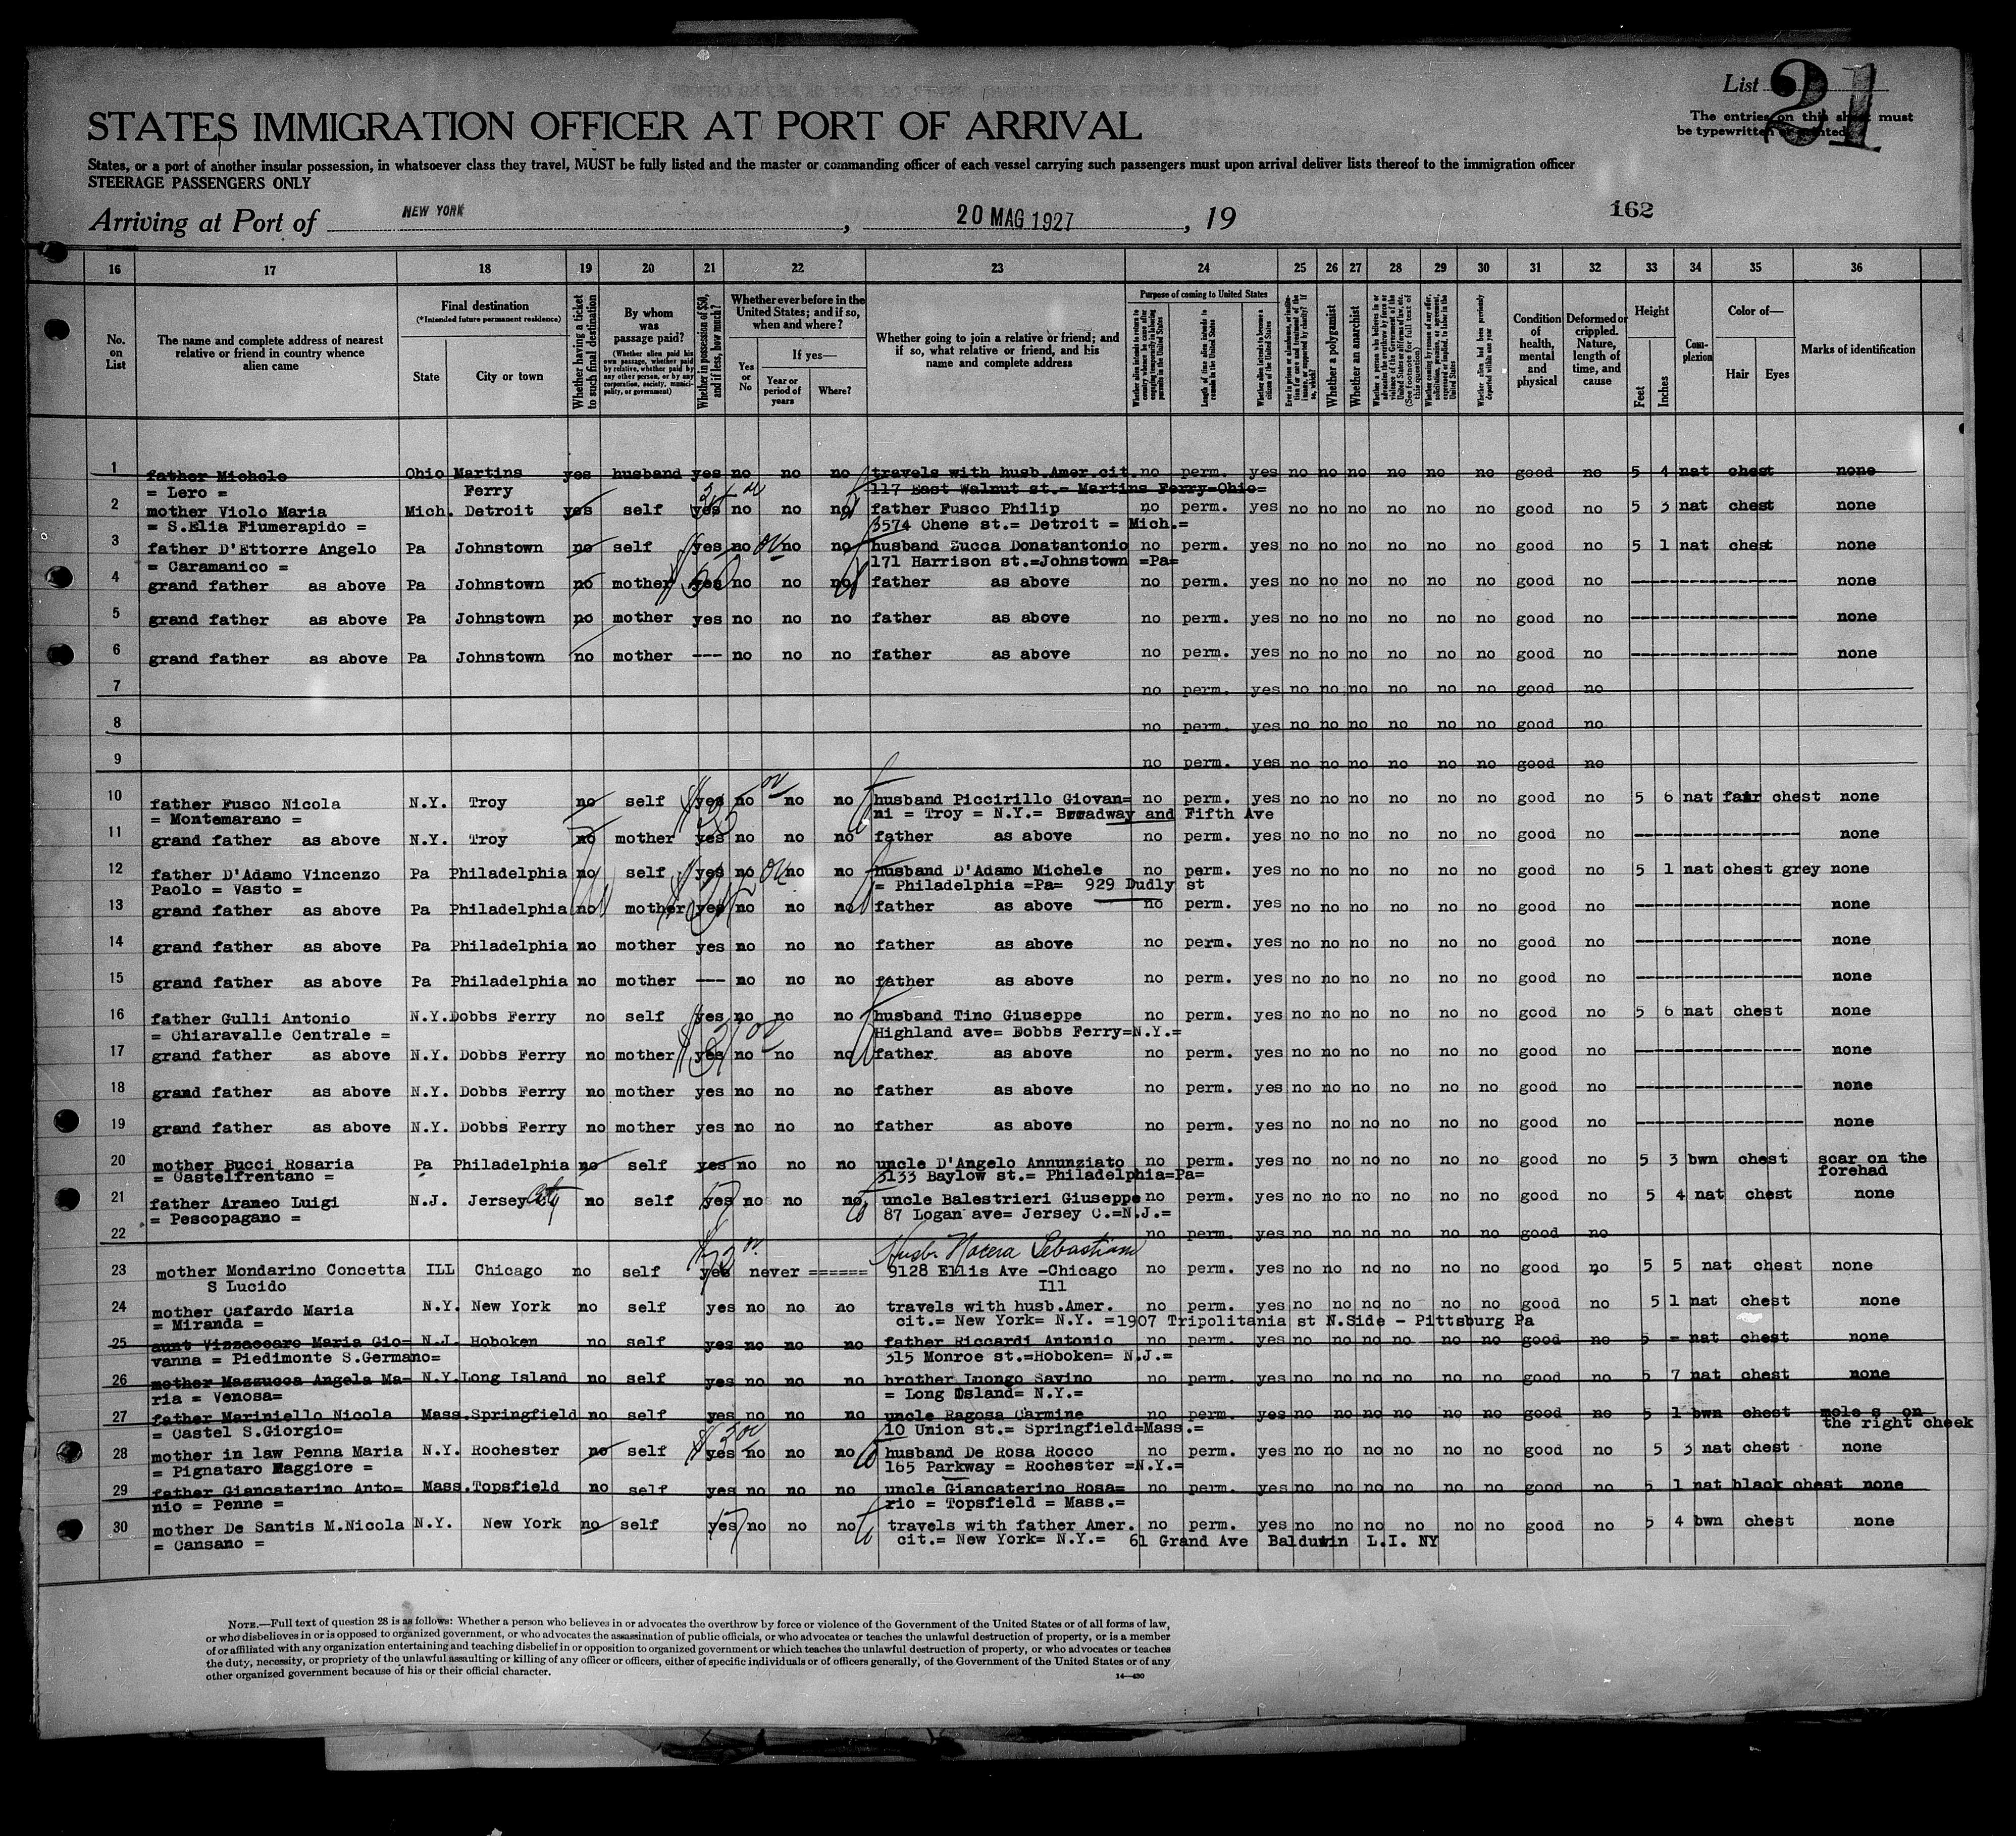 List 21
The entries on this sheet must
be typewritten or printed
STATES IMMIGRATION OFFICER AT PORT OF ARRIVAL
States, or a port of another insular possession, in whatsoever class they travel, MUST be fully listed and the master or commanding officer of each vessel carrying such passengers must upon arrival deliver lists thereof to the immigration officer
STEERAGE PASSENGERS ONLY
Arriving at Port of NEW YORK, 20 MAG 1927, 19
162
16 17 18 19 20 21 22 23 24 25 26 27 28 29 30 31 32 33 34 35 36
No. on List
The name and complete address of nearest relative or friend in country whence alien came
Final destination
(*Intended future permanent residence)
State
City or town
Whether having a ticket to such final destination
By whom was passage paid?
(Whether alien paid his own passage, whether paid by relative, whether paid by any other person, or by any corporation, society, municipality, or government)
Whether in possession of $50, and if less, how much?
Whether ever before in the United States; and if so, when and where?
Yes or No
If yes—
Year or period of years
Where?
Whether going to join a relative or friend; and if so, what relative or friend, and his name and complete address
Purpose of coming to United States
Length of time alien intends to remain in the United States
Whether alien intends to become a citizen of the United States
Whether a polygamist
Whether an anarchist
(See footnote for full text of this question)
Whether alien had been previously deported within one year
Condition of health, mental and physical
Deformed or crippled. Nature, length of time, and cause
Height
Feet
Inches
Complexion
Color of—
Hair
Eyes
Marks of identification
1 father Michele Ohio Martins yes husband yes no no no travels with husb.Amer.cit no perm. yes no no no no no no good no 5 4 nat chest none
= Lero = Ferry 117 East Walnut st.= Martins Ferry=Ohio=
2 mother Violo Maria Mich. Detroit yes self yes no no no father Fusco Philip no perm. yes no no no no no no good no 5 3 nat chest none
= S.Elia Fiumerapido = 3574 Chene st.= Detroit = Mich.=
3 father D'Ettorre Angelo Pa Johnstown no self yes no no no husband Zucca Donatantonio no perm. yes no no no no no no good no 5 1 nat chest none
= Caramanico = 171 Harrison st.=Johnstown =Pa=
4 grand father as above Pa Johnstown no mother yes no no no father as above no perm. yes no no no no no no good no ---------- none
5 grand father as above Pa Johnstown no mother yes no no no father as above no perm. yes no no no no no no good no ---------- none
6 grand father as above Pa Johnstown no mother --- no no no father as above no perm. yes no no no no no no good no ---------- none
7 no perm. yes no no no no no no good no
8 no perm. yes no no no no no no good no
9 no perm. yes no no no no no no good no
10 father Fusco Nicola N.Y. Troy no self yes no no no husband Piccirillo Giovan= no perm. yes no no no no no no good no 5 6 nat fair chest none
= Montemarano = ni = Troy = N.Y.= Broadway and Fifth Ave
11 grand father as above N.Y. Troy no mother yes no no no father as above no perm. yes no no no no no no good no ---------- none
12 father D'Adamo Vincenzo Pa Philadelphia no self yes no no no husband D'Adamo Michele no perm. yes no no no no no no good no 5 1 nat chest grey none
Paolo = Vasto = = Philadelphia =Pa= 929 Dudly st
13 grand father as above Pa Philadelphia no mother yes no no no father as above no perm. yes no no no no no no good no ---------- none
14 grand father as above Pa Philadelphia no mother yes no no no father as above no perm. yes no no no no no no good no ---------- none
15 grand father as above Pa Philadelphia no mother --- no no no father as above no perm. yes no no no no no no good no ---------- none
16 father Gulli Antonio N.Y. Dobbs Ferry no self yes no no no husband Tino Giuseppe no perm. yes no no no no no no good no 5 6 nat chest none
= Chiaravalle Centrale = Highland ave= Dobbs Ferry=N.Y.=
17 grand father as above N.Y. Dobbs Ferry no mother yes no no no father as above no perm. yes no no no no no no good no ---------- none
18 grand father as above N.Y. Dobbs Ferry no mother yes no no no father as above no perm. yes no no no no no no good no ---------- none
19 grand father as above N.Y. Dobbs Ferry no mother yes no no no father as above no perm. yes no no no no no no good no ---------- none
20 mother Bucci Rosaria Pa Philadelphia no self yes no no no uncle D'Angelo Annunziato no perm. yes no no no no no no good no 5 3 bwn chest scar on the
= Castelfrentano = 3133 Baylow st.= Philadelphia=Pa= forehad
21 father Araneo Luigi N.J. Jersey City no self yes no no no uncle Balestrieri Giuseppe no perm. yes no no no no no no good no 5 4 nat chest none
= Pescopagano = 87 Logan ave= Jersey C.=N.J.=
22 no perm. yes no no no no no no good no
Husb. Nocera Sebastiano
23 mother Mondarino Concetta ILL Chicago no self yes never ====== 9128 Ellis Ave -Chicago no perm. yes no no no no no no good no 5 5 nat chest none
S Lucido Ill
24 mother Cafardo Maria N.Y. New York no self yes no no no travels with husb.Amer. no perm. yes no no no no no no good no 5 1 nat chest none
= Miranda = cit.= New York= N.Y. =1907 Tripolitania st N.Side - Pittsburg Pa
25 aunt Vizzaccaro Maria Gio= N.J. Hoboken no self yes no no no father Riccardi Antonio no perm. yes no no no no no no good no 5 - nat chest none
vanna = Piedimonte S.Germano= 315 Monroe st.=Hoboken= N.J.=
26 mother Mazzucca Angela Ma= N.Y. Long Island no self yes no no no brother Luongo Savino no perm. yes no no no no no no good no 5 7 nat chest none
ria = Venosa= = Long Island= N.Y.=
27 father Mariniello Nicola Mass. Springfield no self yes no no no uncle Ragosa Carmine no perm. yes no no no no no no good no 5 1 bwn chest mole s on
= Castel S.Giorgio= 10 Union st.= Springfield=Mass.= the right cheek
28 mother in law Penna Maria N.Y. Rochester no self yes no no no husband De Rosa Rocco no perm. yes no no no no no no good no 5 3 nat chest none
= Pignataro Maggiore = 165 Parkway = Rochester =N.Y.=
29 father Giancaterino Anto= Mass. Topsfield no self yes no no no uncle Giancaterino Rosa= no perm. yes no no no no no no good no 5 1 nat black chest none
nio = Penne = rio = Topsfield = Mass.=
30 mother De Santis M.Nicola N.Y. New York no self yes no no no travels with father Amer. no perm. yes no no no no no no good no 5 4 bwn chest none
= Cansano = cit.= New York= N.Y.= 61 Grand Ave Baldwin L.I. NY
NOTE.—Full text of question 28 is as follows: Whether a person who believes in or advocates the overthrow by force or violence of the Government of the United States or of all forms of law,
or who disbelieves in or is opposed to organized government, or who advocates the assassination of public officials, or who advocates or teaches the unlawful destruction of property, or is a member
of or affiliated with any organization entertaining and teaching disbelief in or opposition to organized government or which teaches the unlawful destruction of property, or who advocates or teaches
the duty, necessity, or propriety of the unlawful assaulting or killing of any officer or officers, either of specific individuals or of officers generally, of the Government of the United States or of any
other organized government because of his or their official character.
14—430